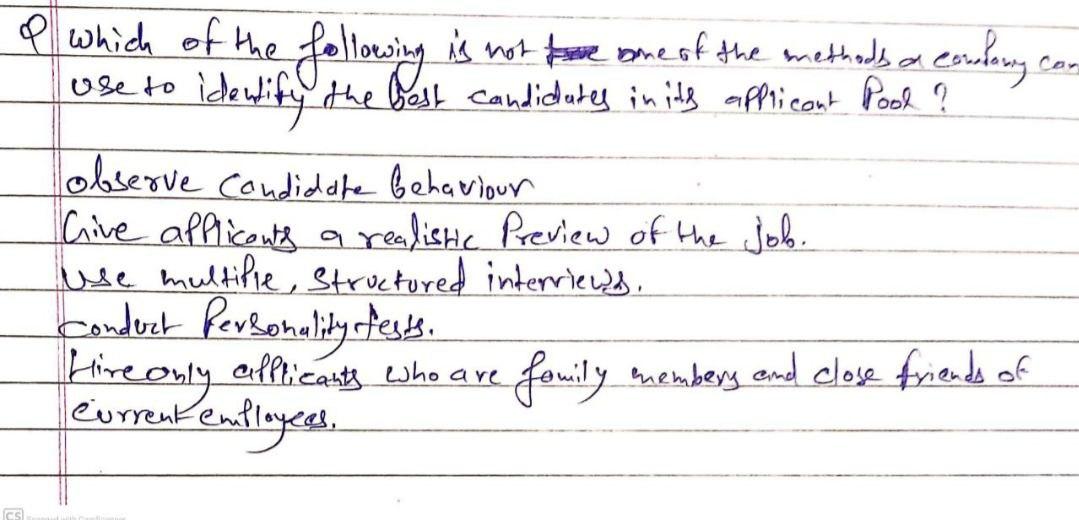 Q which of the following is not one of the methods a company can
use to identify the best candidates in its applicant Pool ?
observe candidate behaviour
Give applicants a realistic Preview of the job.
use multiple, structured interviews.
conduct Personality tests.
Hire only applicants who are family members and close friends of
current employees.
CS Scanned with CamScanner